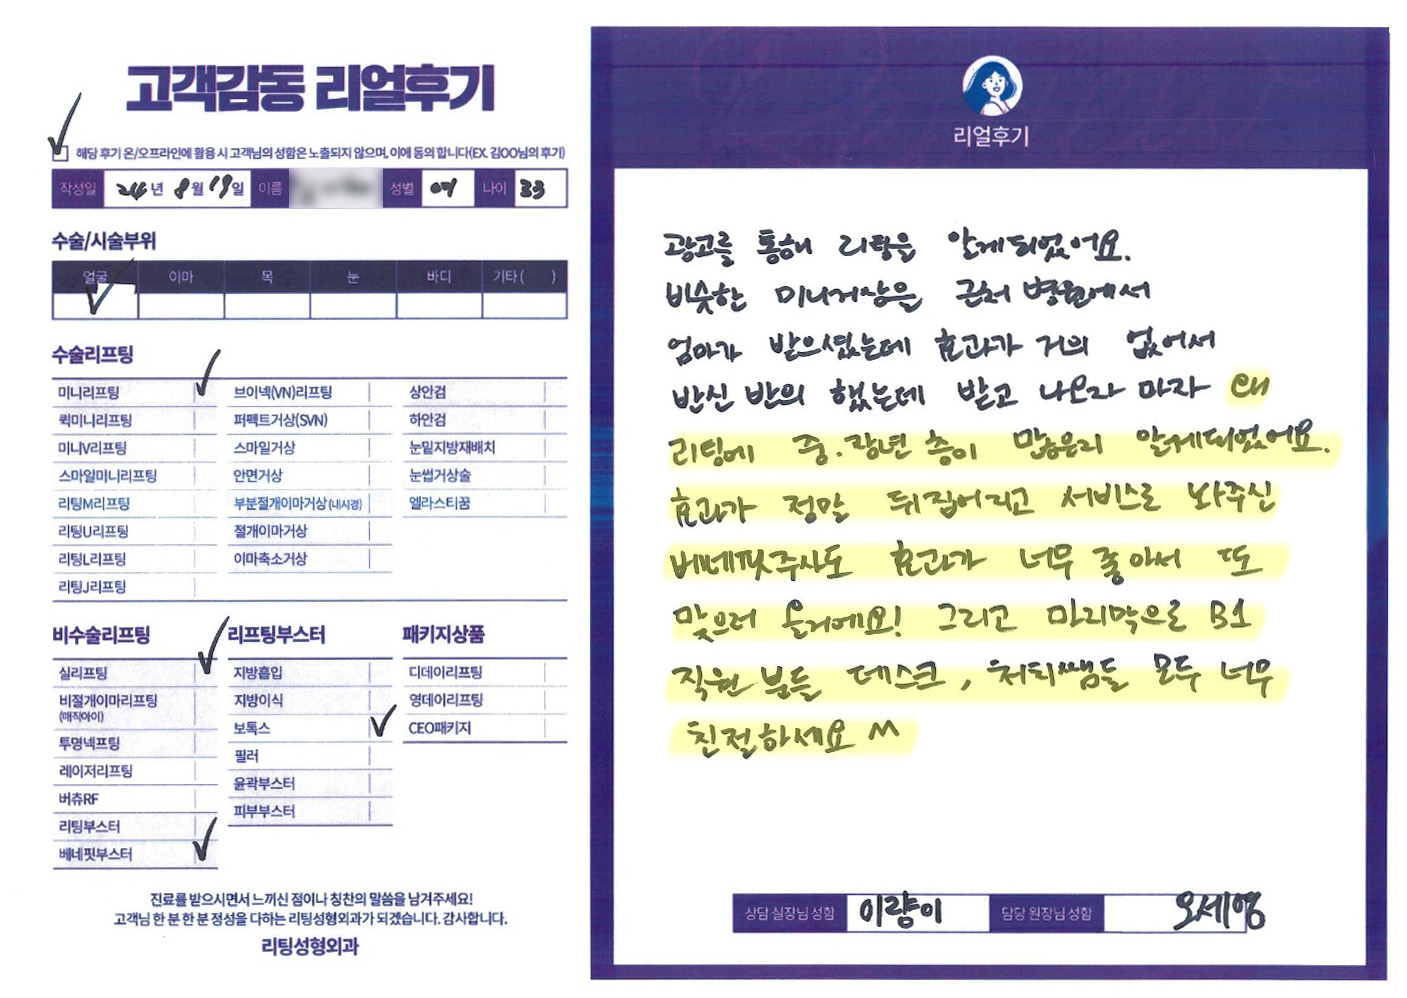 고객감동 리얼후기
해당 후기 온/오프라인에 활용 시 고객님의 성함은 노출되지 않으며, 이에 동의 합니다(EX. 김OO님의 후기)
작성일 24년 8월 19일 이름 성별 여 나이 33
수술/시술부위
얼굴 이마 목 눈 바디 기타( )
수술리프팅
미니리프팅 브이넥(VN)리프팅 상안검
퀵미니리프팅 퍼펙트거상(SVN) 하안검
미니V리프팅 스마일거상 눈밑지방재배치
스마일미니리프팅 안면거상 눈썹거상술
리팅M리프팅 부분절개이마거상(내시경) 엘라스티꿈
리팅U리프팅 절개이마거상
리팅L리프팅 이마축소거상
리팅J리프팅
비수술리프팅 리프팅부스터 패키지상품
실리프팅 지방흡입 디데이리프팅
비절개이마리프팅 지방이식 영데이리프팅
(매직아이) 보톡스 CEO패키지
투명넥프팅 필러
레이저리프팅 윤곽부스터
버츄RF 피부부스터
리팅부스터
베네핏부스터
진료를 받으시면서 느끼신 점이나 칭찬의 말씀을 남겨주세요!
고객님 한 분 한 분 정성을 다하는 리팅성형외과가 되겠습니다. 감사합니다.
리팅성형외과
리얼후기
광고를 통해 리팅을 알게되었어요.
비슷한 미니거상을 근처 병원에서
엄마가 받으셨는데 효과가 거의 없어서
반신 반의 했는데 받고 나오자 마자 왜
리팅에 중.장년 층이 많은지 알게되었어요.
효과가 정말 뒤집어지고 서비스로 놔주신
베네핏주사도 효과가 너무 좋아서 또
맞으러 올거에요! 그리고 마지막으로 B1
직원 분들 데스크, 처치쌤들 모두 너무
친절하세요 ^^
상담 실장님 성함 이량이 담당 원장님 성함 오세영